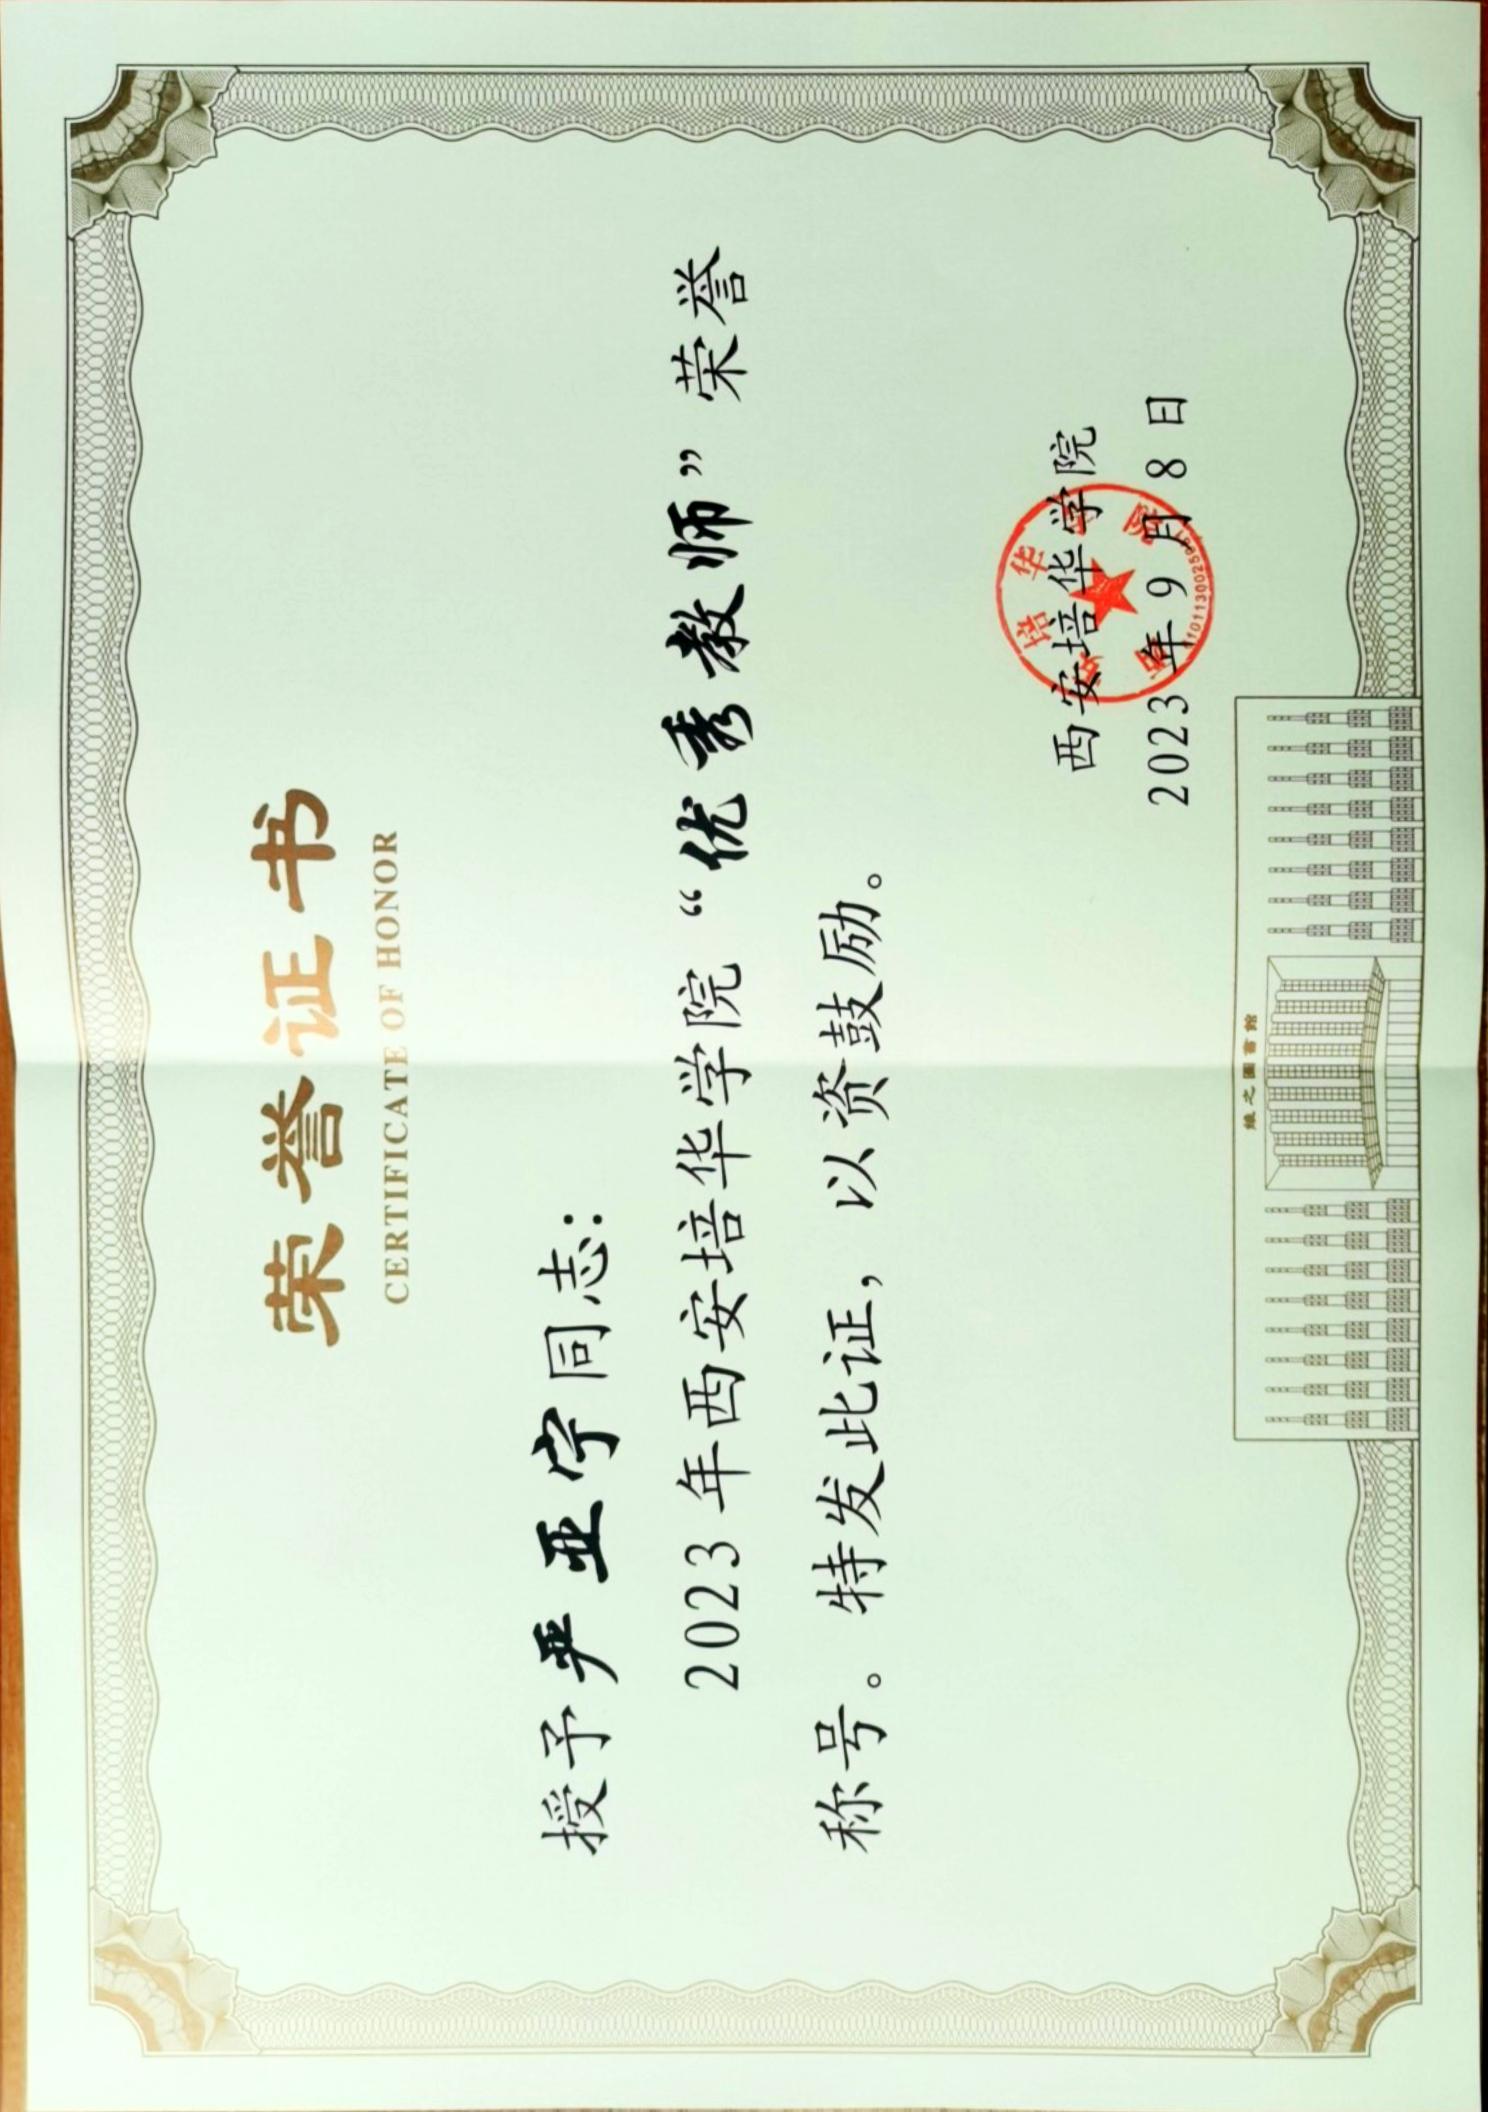 荣誉证书
CERTIFICATE OF HONOR
授予严亚宁同志：
2023年西安培华学院“优秀教师”荣誉
称号。特发此证，以资鼓励。
西安培华学院
2023年9月8日
西安培华学院
維之圖書館